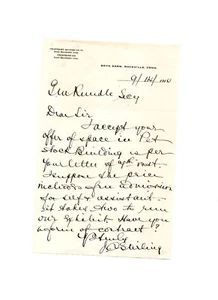 9/14/1910
Geo Rundle Secy
Dear Sir
I accept your
offer of space in Pet
Stock Building as per
your letter of 7th inst.
I suppose the price
includes free admission
for self & assistant.
it takes two to run
our exhibit. Have you
a form of contract?
Y Truly
J Stirling